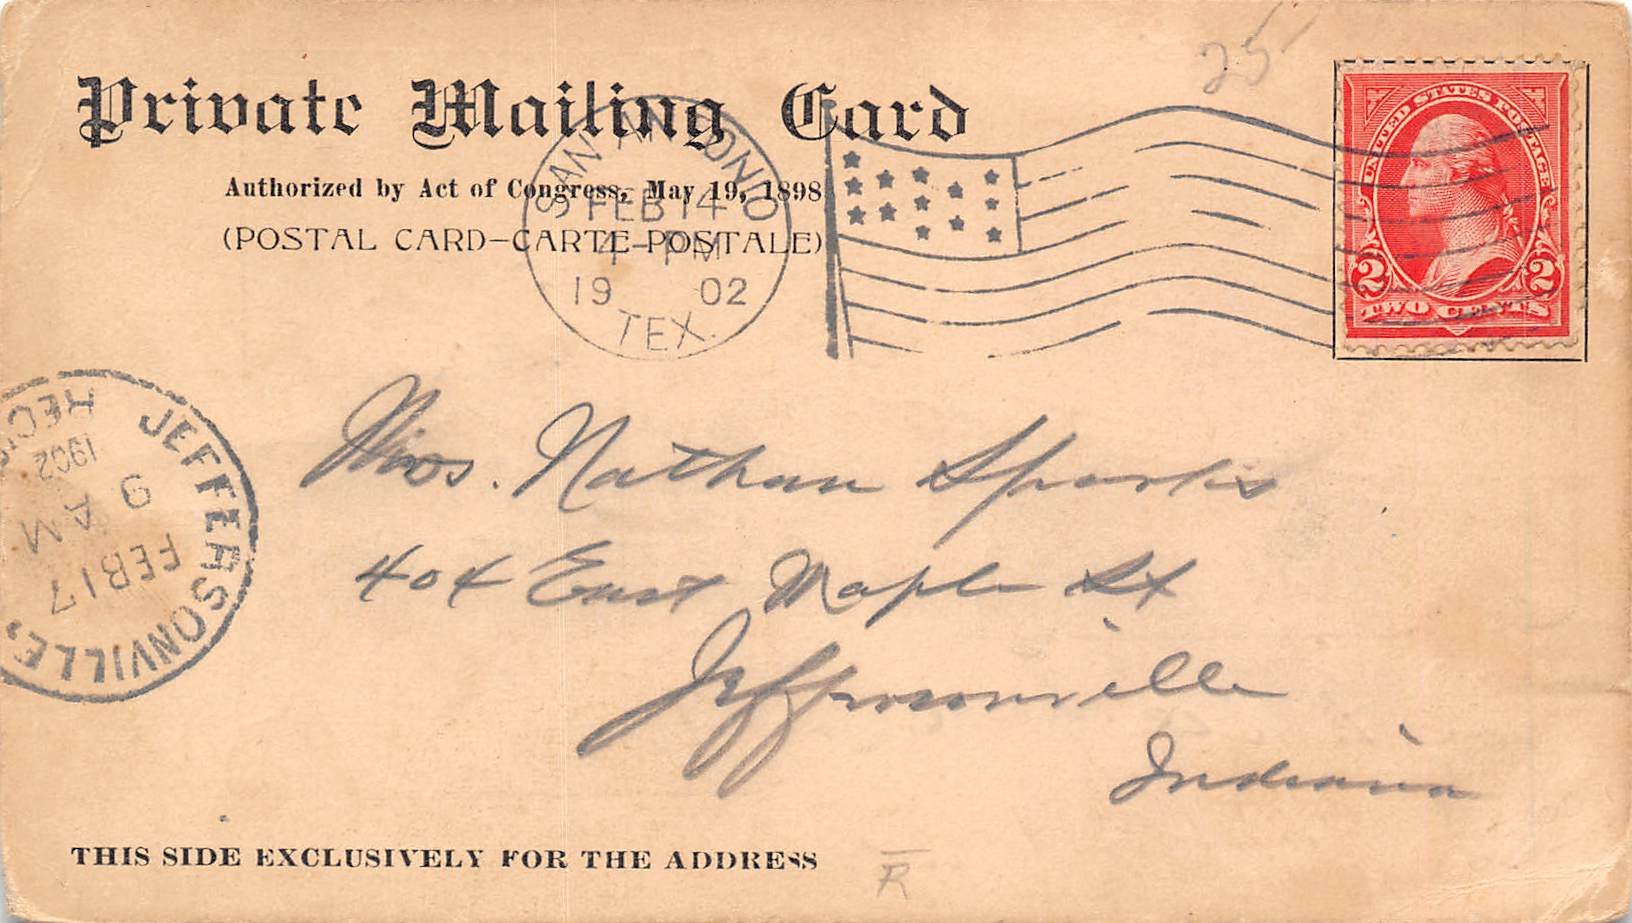 25
Private Mailing Card
Authorized by Act of Congress, May 19, 1898
(POSTAL CARD–CARTE POSTALE)
SAN ANTONIO
FEB 14
4 – PM
19 02
TEX.
UNITED STATES POSTAGE
2 2
TWO CENTS
JEFFERSONVILLE,
FEB 17
9 AM
1902
REC'
Nathan
404 East Maple St
Jeffersonville
Indiana
THIS SIDE EXCLUSIVELY FOR THE ADDRESS
R